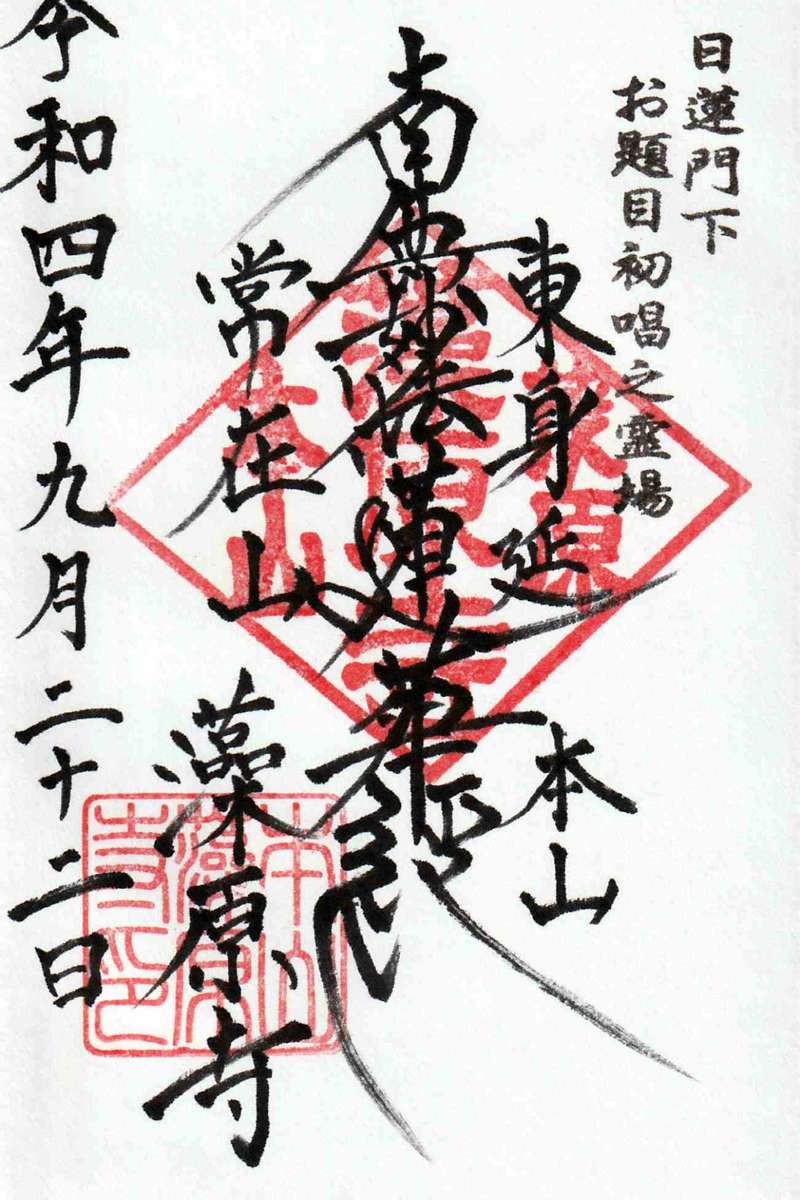 日蓮門下
お題目初唱之霊場
東身延
本山
南無妙法蓮華経
常在山
藻原寺
令和四年九月二十二日
藻原
本山
本山
藻原
寺印